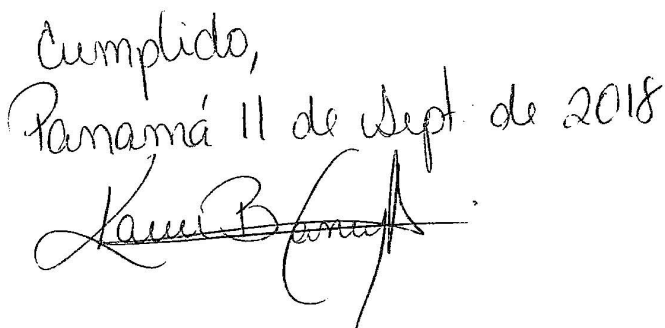 Cumplido,
Panamá 11 de Sept. de 2018